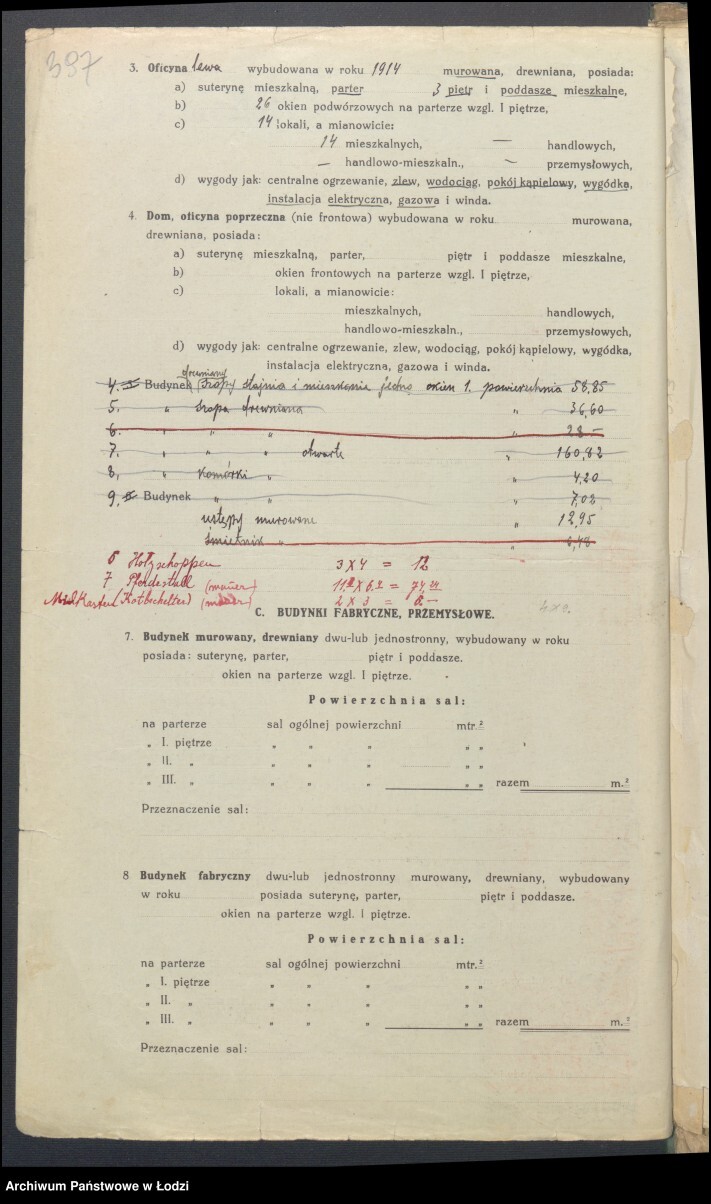 397
3. Oficyna lewa wybudowana w roku 1914 murowana, drewniana, posiada:
a) suterynę mieszkalną, parter 3 piętr i poddasze mieszkalne,
b) 26 okien podwórzowych na parterze wzgl. I piętrze,
c) 14 lokali, a mianowicie:
14 mieszkalnych, — handlowych,
— handlowo-mieszkaln., — przemysłowych,
d) wygody jak: centralne ogrzewanie, zlew, wodociąg, pokój kąpielowy, wygódka,
instalacja elektryczna, gazowa i winda.
4. Dom, oficyna poprzeczna (nie frontowa) wybudowana w roku murowana,
drewniana, posiada:
a) suterynę mieszkalną, parter, piętr i poddasze mieszkalne,
b) okien frontowych na parterze wzgl. I piętrze,
c) lokali, a mianowicie:
mieszkalnych, handlowych,
handlowo-mieszkaln., przemysłowych,
d) wygody jak: centralne ogrzewanie, zlew, wodociąg, pokój kąpielowy, wygódka,
instalacja elektryczna, gazowa i winda.
drewniany
4. Budynek szopy stajnia i mieszkanie jedno okien 1. powierzchnia 58,85
5. " szopa drewniana " 36,60
6. " " " " 28 —
7. " " " otwarte " 160,82
8, " komórki " " 4,20
9. Budynek " " " 7,02
ustępy murowane " 12,95
śmietnik " " 6,48
6 Holzschoppen 3 x 4 = 12
7 Pferdestall (mauer) x 6,2 = 74,24
(mauer) 2 x 3 = 6.—
C. BUDYNKI FABRYCZNE, PRZEMYSŁOWE.
7. Budynek murowany, drewniany dwu-lub jednostronny, wybudowany w roku
posiada: suterynę, parter, piętr i poddasze.
okien na parterze wzgl. I piętrze.
Powierzchnia sal:
na parterze sal ogólnej powierzchni mtr.²
" I. piętrze " " " " "
" II. " " " " " "
" III. " " " " " " razem m.²
Przeznaczenie sal:
8 Budynek fabryczny dwu-lub jednostronny murowany, drewniany, wybudowany
w roku posiada suterynę, parter, piętr i poddasze.
okien na parterze wzgl. I piętrze.
Powierzchnia sal:
na parterze sal ogólnej powierzchni mtr.²
" I. piętrze " " " " "
" II. " " " " " "
" III. " " " " " " razem m.²
Przeznaczenie sal:
Archiwum Państwowe w Łodzi